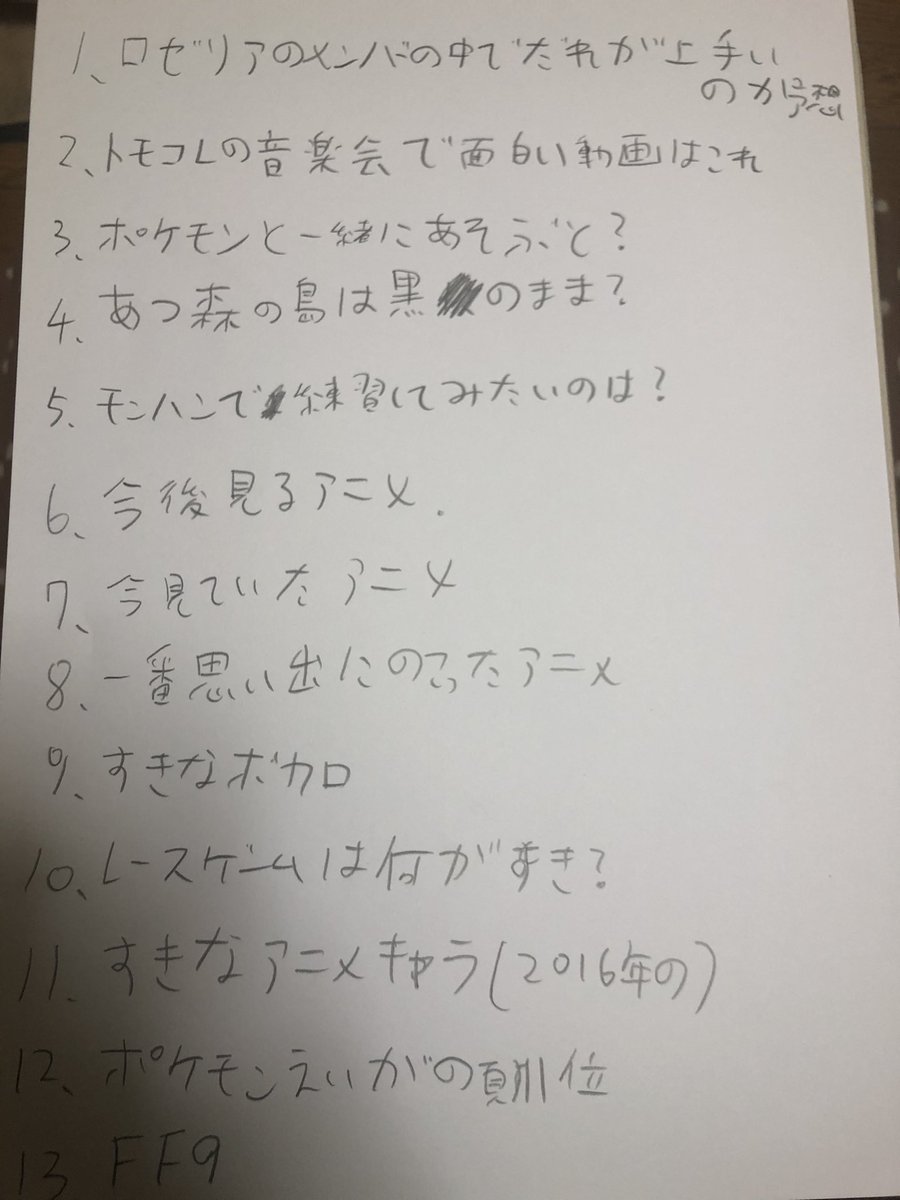 1、ロゼリアのメンバの中でだれが上手い
のか予想
2、トモコレの音楽会で面白い動画はこれ
3、ポケモンと一緒にあそぶと?
4、あつ森の島は黒のまま?
5、モンハンで練習してみたいのは?
6、今後見るアニメ.
7、今見ていたアニメ
8、一番思い出にのこったアニメ
9、すきなボカロ
10、レースゲームは何がすき?
11、すきなアニメキャラ(2016年の)
12、ポケモンえいがの順位
13 FF9